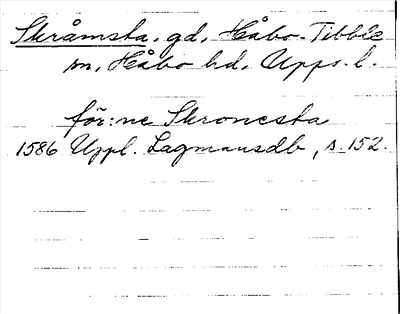 Skråmsta, gd, Håbo-Tibble
sn, Håbo hd, Upps. l.
för:ne Skronesta
1586 Uppl. Lagmansdb, s. 152.